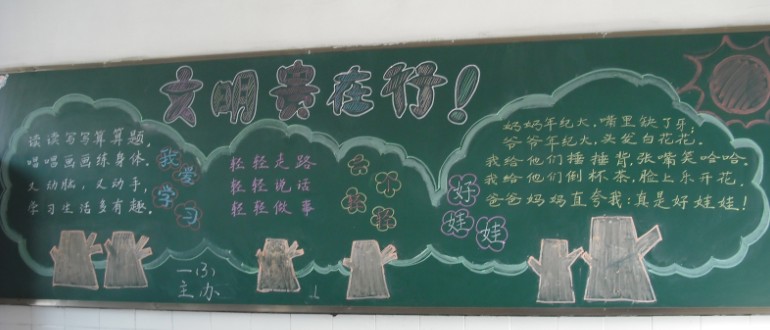 文明贵在行!
读读写写算算题,
唱唱画画练身体.
又动脑,又动手,
学习生活多有趣.
我爱
学习
轻轻走路
轻轻说话
轻轻做事
好
娃娃
奶奶年纪大,嘴里缺了牙;
爷爷年纪大,头发白花花.
我给他们捶捶背,张嘴笑哈哈.
我给他们倒杯茶,脸上乐开花.
爸爸妈妈直夸我:真是好娃娃!
主办